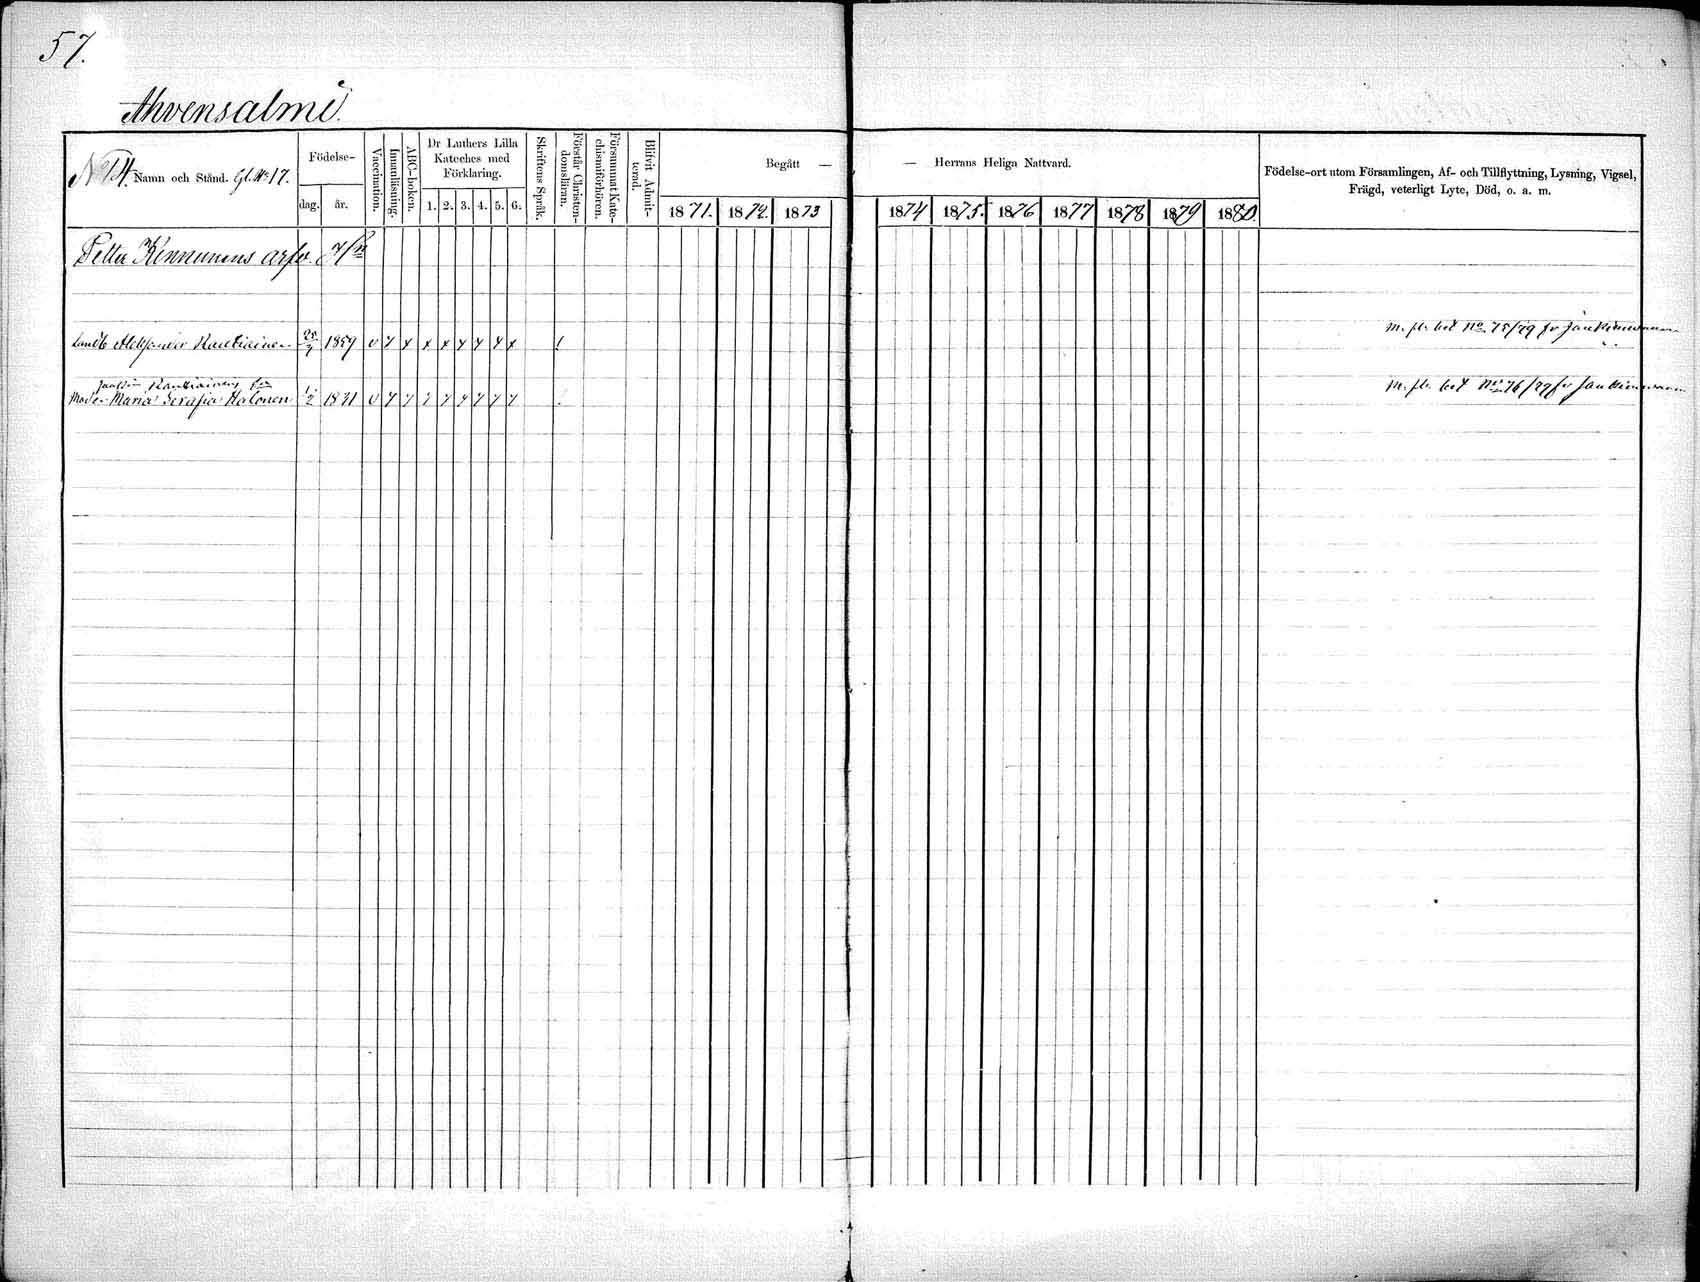 57.
Ahvensalmi.
No 14. Namn och Stånd. Gl. No 17.
Födelse-
dag. år.
Vaccination.
Innanläsning.
ABC-boken.
Dr Luthers Lilla
Kateches med
Förklaring.
1. 2. 3. 4. 5. 6.
Skriftens Språk.
Förstår Christen-
domsläran.
Försummat Kate-
chismiförhören.
Blifvit Admit-
terad.
Begått —
1871. 1872. 1873
— Herrans Heliga Nattvard.
1874 1875. 1876 1877 1878 1879 1880.
Födelse-ort utom Församlingen, Af- och Tillflyttning, Lysning, Vigsel,
Frägd, veterligt Lyte, Död, o. a. m.
Petter Kinnunens arfv.
Aleksander Rautiainen 1859
m. fl. bet No 75/79 fr
Rautiainens
Moder Maria Serafia Halonen 1/2 1831
m. fl. bet No 76/79 fr